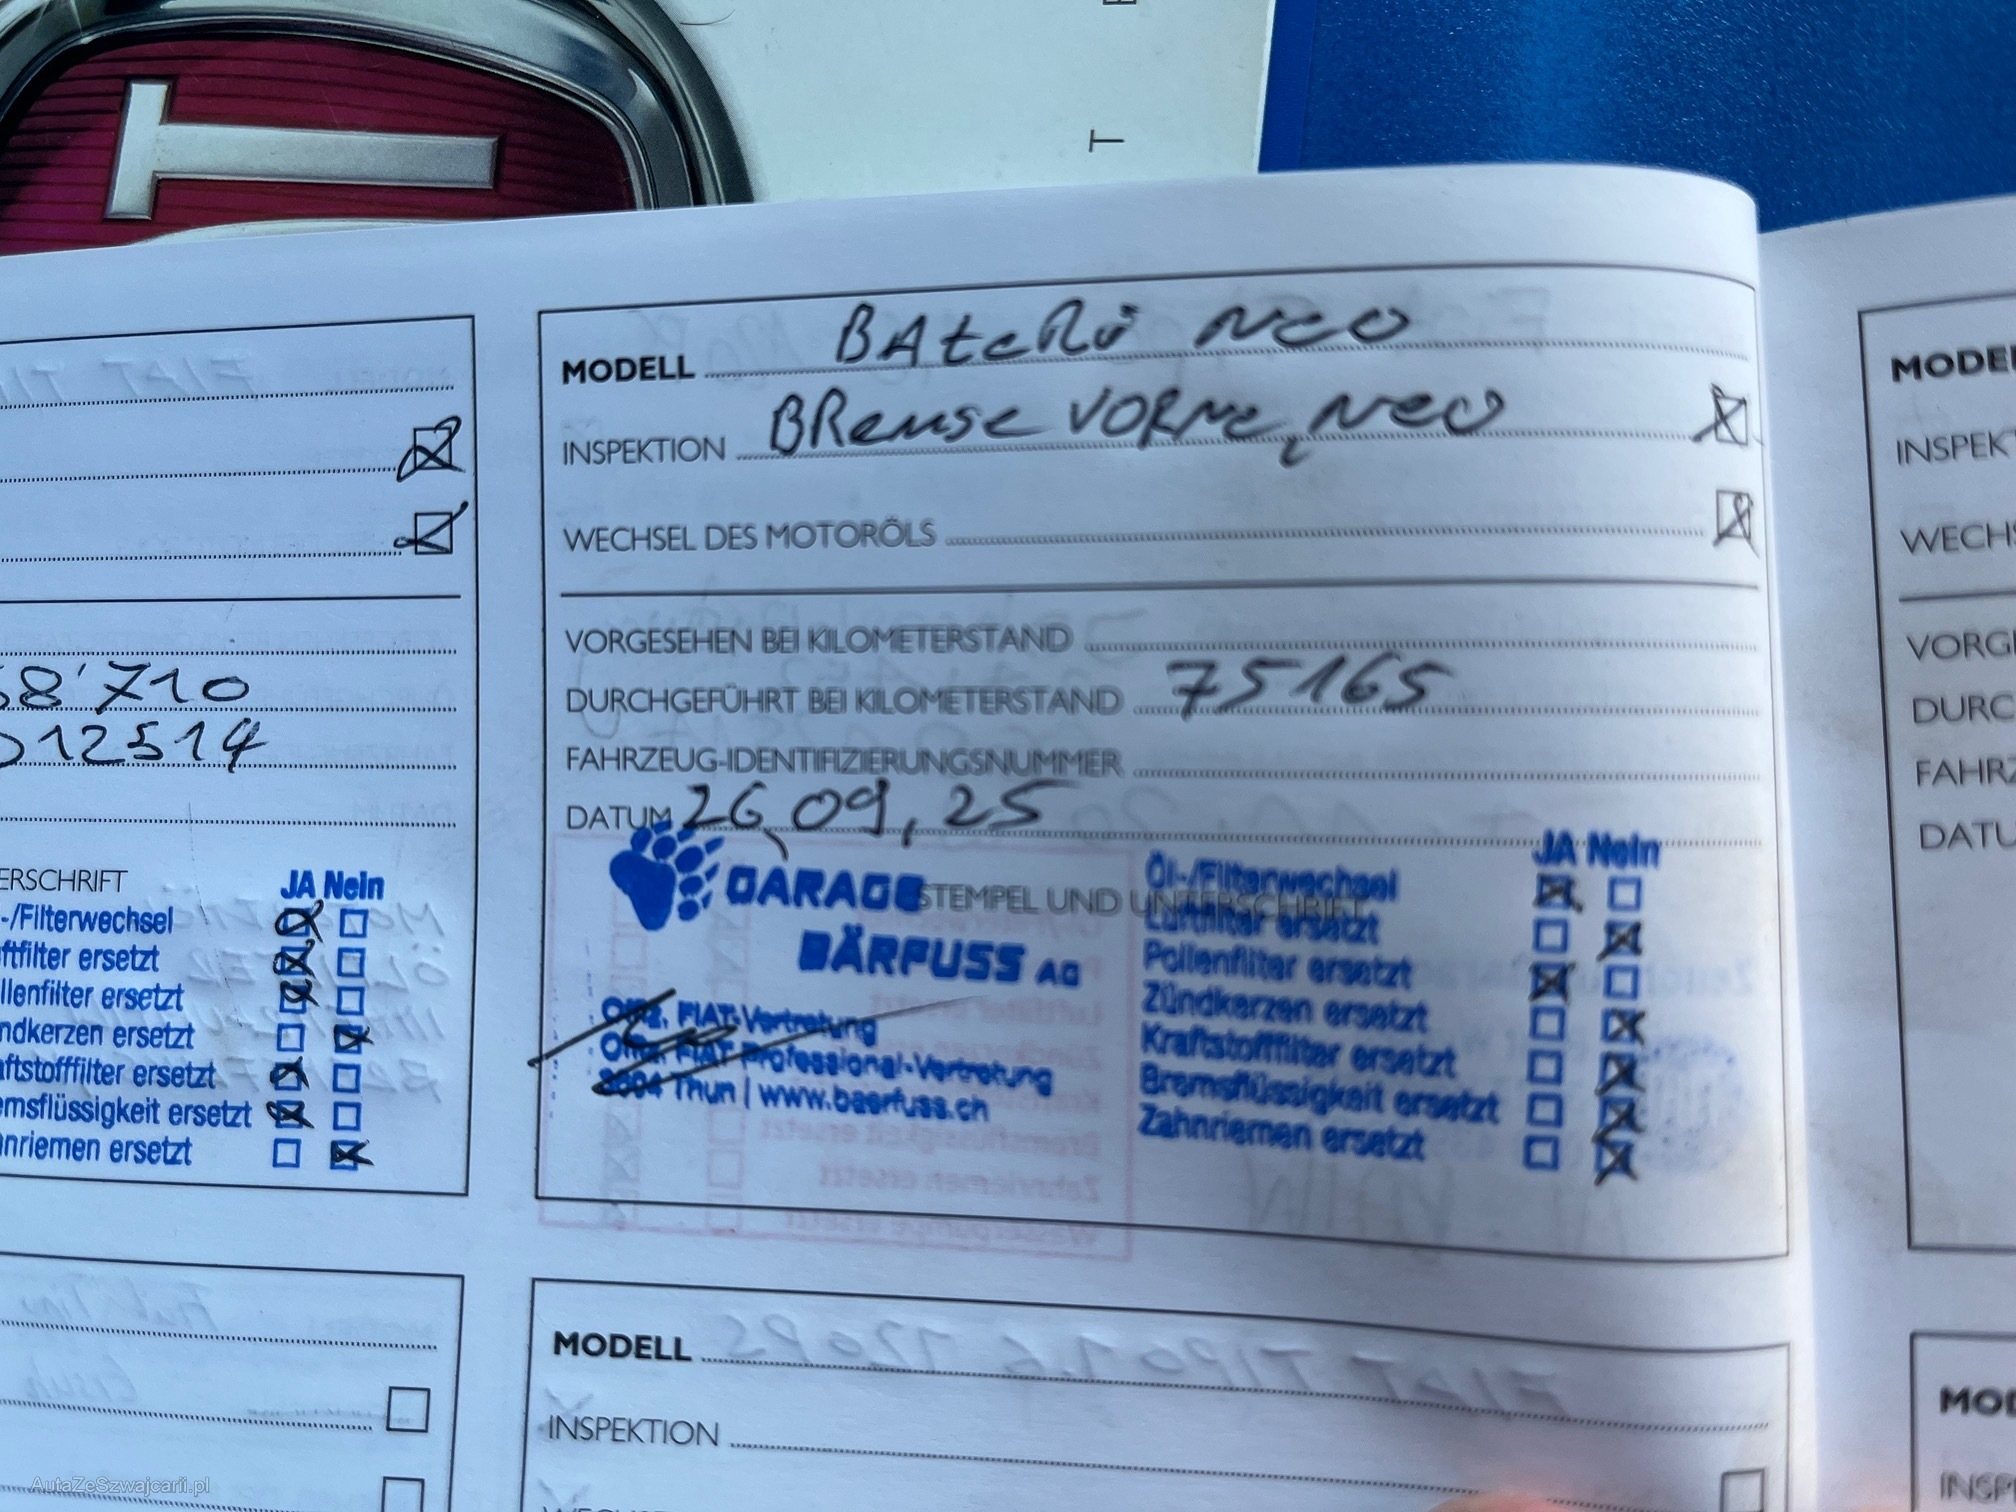 T
T
MODELL BAteRü Neo
INSPEKTION BRemse VORNe, Neo
WECHSEL DES MOTORÖLS
VORGESEHEN BEI KILOMETERSTAND
DURCHGEFÜHRT BEI KILOMETERSTAND 75165
FAHRZEUG-IDENTIFIZIERUNGSNUMMER
DATUM 26,09,25
STEMPEL UND UNTERSCHRIFT
GARAGE
BÄRFUSS AG
Offiz. FIAT-Vertretung
Offiz. FIAT Professional-Vertretung
3604 Thun | www.baerfuss.ch
JA Nein
Öl-/Filterwechsel
Luftfilter ersetzt
Pollenfilter ersetzt
Zündkerzen ersetzt
Kraftstofffilter ersetzt
Bremsflüssigkeit ersetzt
Zahnriemen ersetzt
8'710
12514
ERSCHRIFT
JA Nein
-/Filterwechsel
ftfilter ersetzt
llenfilter ersetzt
ndkerzen ersetzt
aftstofffilter ersetzt
emsflüssigkeit ersetzt
hnriemen ersetzt
MODELL
INSPEKTION
MODEL
INSPEK
WECHS
VORGE
DURC
FAHRZ
DATU
MOD
INSP
AutaZeSzwajcarii.pl